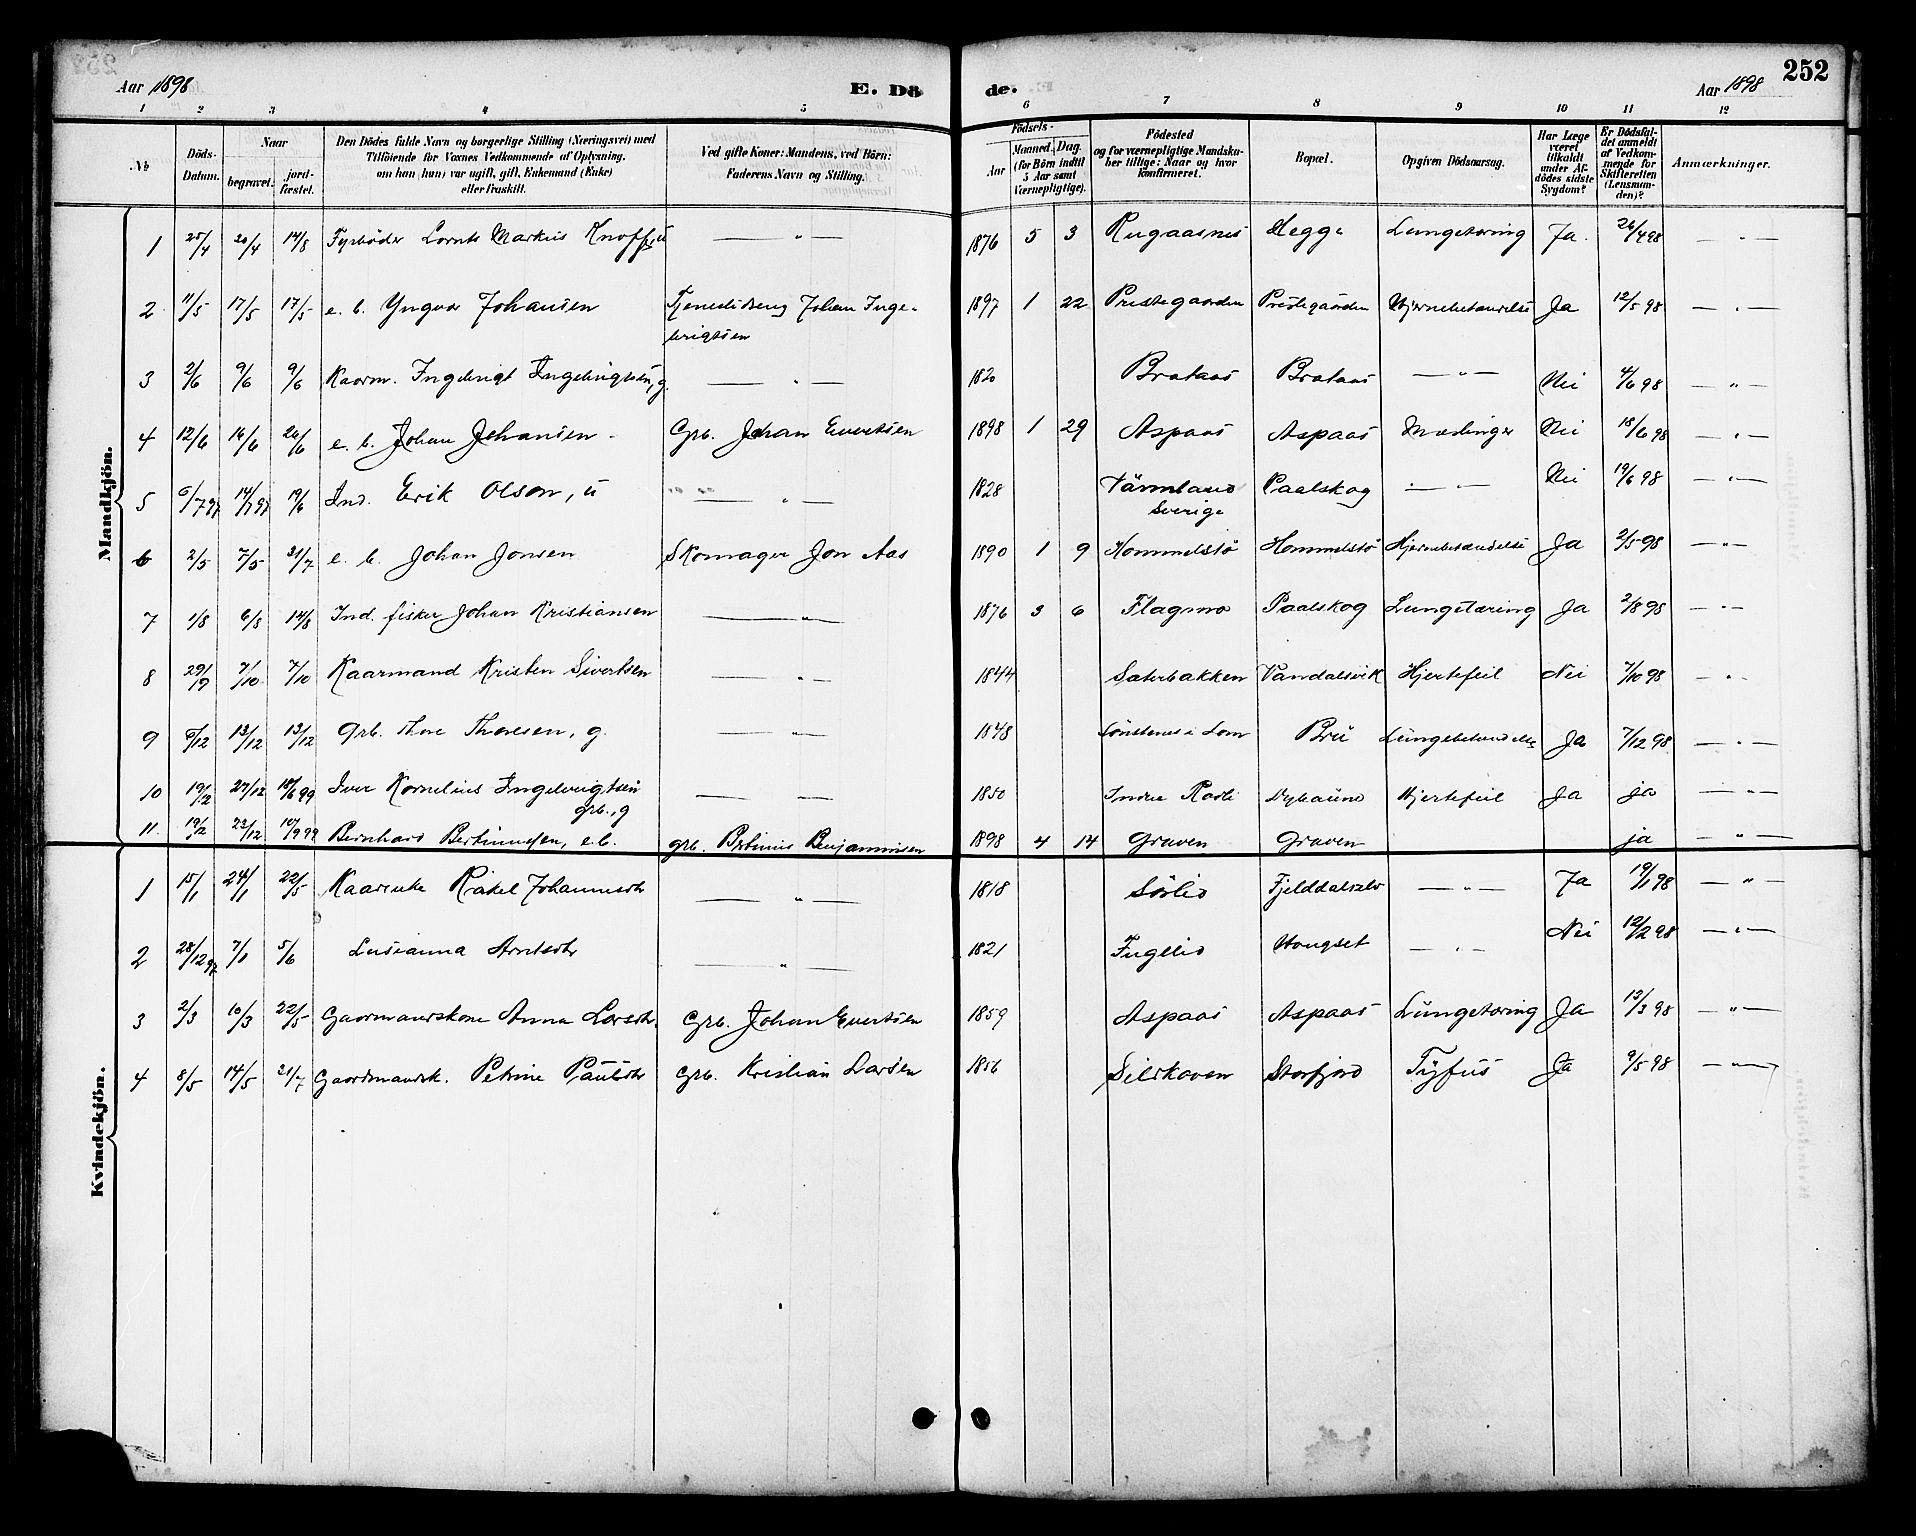 252
Aar 1898 E. Dö de. Aar 1898
1 2 3 4 5 6 7 8 9 10 11 12
No. Döds-Datum. Naar begravet. jord-fæstet. Den Dödes fulde Navn og borgerlige Stilling (Næringsvei) med Tilföiende for Voxnes Vedkommende af Oplysning, om han (hun) var ugift, gift, Enkemand (Enke) eller fraskilt. Ved gifte Koner: Mandens, ved Börn: Faderens Navn og Stilling. Födsels- Aar Maaned. Dag. (for Börn indtil 5 Aar samt Værnepligtige). Födested og for værnepligtige Mandskaber tillige: Naar og hvor konfirmeret. Bopæl. Opgiven Dödsaarsag. Har Læge været tilkaldt under Afdödes sidste Sygdom? Er Dödsfaldet anmeldt af Vedkommende for Skifteretten (Lensmanden)? Anmærkninger.
Mandkjön.
1 25/4 20/4 14/8 Fyrböder Lornts Markus Knoff, u — " — 1876 5 3 Rugaasnes Hegge Lungetæring Ja. 26/4 98 — " —
2 11/5 17/5 17/5 e. b. Yngvar Johansen Tjenestedreng Johan Inge-
brigtsen 1897 1 22 Prestegaarden Prestegaarden Hjernebetændelse Ja 12/5 98 — " —
3 2/6 9/6 9/6 Kaarm. Ingebrigt Ingebrigtsen, g. — " — 1820 Brataas Brataas — " — Nei 4/6 98 — " —
4 12/6 16/6 26/6 e. b. Johan Johansen Grb. Johan Evertsen 1898 1 29 Aspaas Aspaas Mæslinger Nei 18/6 98 — " —
5 6/7 97 14/7 97 19/6 Ind. Erik Olson, u — " — 1828 Värmland
Sverige Paalskog — " — Nei 19/6 98 — " —
6 2/5 7/5 31/7 e. b. Johan Jonsen Skomager Jon Aas 1890 1 9 Hommelstø Hommelstø Hjernebetændelse Ja 2/5 98 — " —
7 1/8 6/8 14/8 Ind. fisker Johan Kristiansen — " — 1876 3 6 Flagmo Paalskog Lungetæring Ja 2/8 98 — " —
8 29/9 7/10 7/10 Kaarmand Kristen Sivertsen — " — 1844 Sæterbakken Vandalsvik Hjertefeil Nei 7/10 98 — " —
9 5/12 13/12 13/12 Grb. Thore Thoresen, g. — " — 1848 i Lom Bru Lungebetændelse Ja 7/12 98 — " —
10 19/12 27/12 18/6 99 Iver Kornelius Ingebrigtsen
grb., g — — 1850 Indre Hjertefeil Ja ja — " —
11. 19/12 23/12 10/9 99 Bernhard Bertinussen, e. b. grb. Bertinus Benjaminsen 1898 4 14 Graven Graven ja — " —
Kvindekjön.
1 15/1 24/1 22/5 Kaarenke Rakel Johannesdtr — " — 1818 Sörlid Fjelddalselv — " — Ja 19/1 98 — " —
2 28/12 97 7/1 5/6 Lusianna Arntsdtr — " — 1821 Fuglelid Hongset — " — Nei 12/2 98 — " —
3 2/3 10/3 22/5 Gaarmandskone Anna Larsdtr. Grb. Johan Evertsen 1859 Aspaas Aspaas Lungetæring Ja 13/3 98 — " —
4 8/5 14/5 31/7 Gaardmandsk. Petrine Paulsdtr Grb. Kristian Larsen 1856 Storfjord Tyfus Ja 9/5 98 — " —